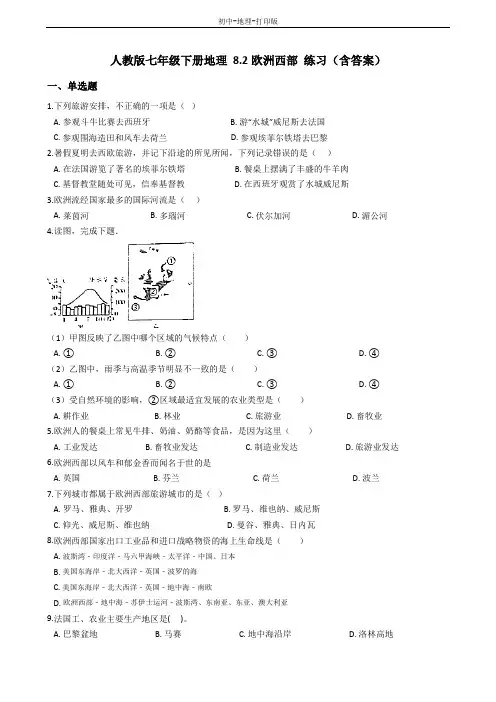 初中-地理-打印版
人教版七年级下册地理 8.2欧洲西部 练习（含答案）
一、单选题
1.下列旅游安排，不正确的一项是（ ）
A. 参观斗牛比赛去西班牙 B. 游“水城”威尼斯去法国
C. 参观围海造田和风车去荷兰 D. 参观埃菲尔铁塔去巴黎
2.暑假夏明去西欧旅游，并记下沿途的所见所闻，下列记录错误的是（ ）
A. 在法国游览了著名的埃菲尔铁塔 B. 餐桌上摆满了丰盛的牛羊肉
C. 基督教堂随处可见，信奉基督教 D. 在西班牙观赏了水城威尼斯
3.欧洲流经国家最多的国际河流是（ ）
A. 莱茵河 B. 多瑙河 C. 伏尔加河 D. 湄公河
4.读图，完成下题。
① ② ③
（1）甲图反映了乙图中哪个区域的气候特点（ ）
A. ① B. ② C. ③ D. ④
（2）乙图中，雨季与高温季节明显不一致的是（ ）
A. ① B. ② C. ③ D. ④
（3）受自然环境的影响，②区域最适宜发展的农业类型是（ ）
A. 耕作业 B. 林业 C. 旅游业 D. 畜牧业
5.欧洲人的餐桌上常见牛排、奶油、奶酪等食品，是因为这里（ ）
A. 工业发达 B. 畜牧业发达 C. 制造业发达 D. 旅游业发达
6.欧洲西部以风车和郁金香而闻名于世的是
A. 英国 B. 芬兰 C. 荷兰 D. 波兰
7.下列城市都属于欧洲西部旅游城市的是（ ）
A. 罗马、雅典、开罗 B. 罗马、维也纳、威尼斯
C. 仰光、威尼斯、维也纳 D. 曼谷、雅典、日内瓦
8.欧洲西部国家出口工业品和进口战略物资的海上生命线是（ ）
A. 波斯湾﹣印度洋﹣马六甲海峡﹣太平洋﹣中国、日本
B. 美国东海岸﹣北大西洋﹣英国﹣波罗的海
C. 美国东海岸﹣北大西洋﹣英国﹣地中海﹣南欧
D. 欧洲西部﹣地中海﹣苏伊士运河﹣波斯湾、东南亚、东亚、澳大利亚
9.法国工、农业主要生产地区是( )。
A. 巴黎盆地 B. 马赛 C. 地中海沿岸 D. 洛林高地